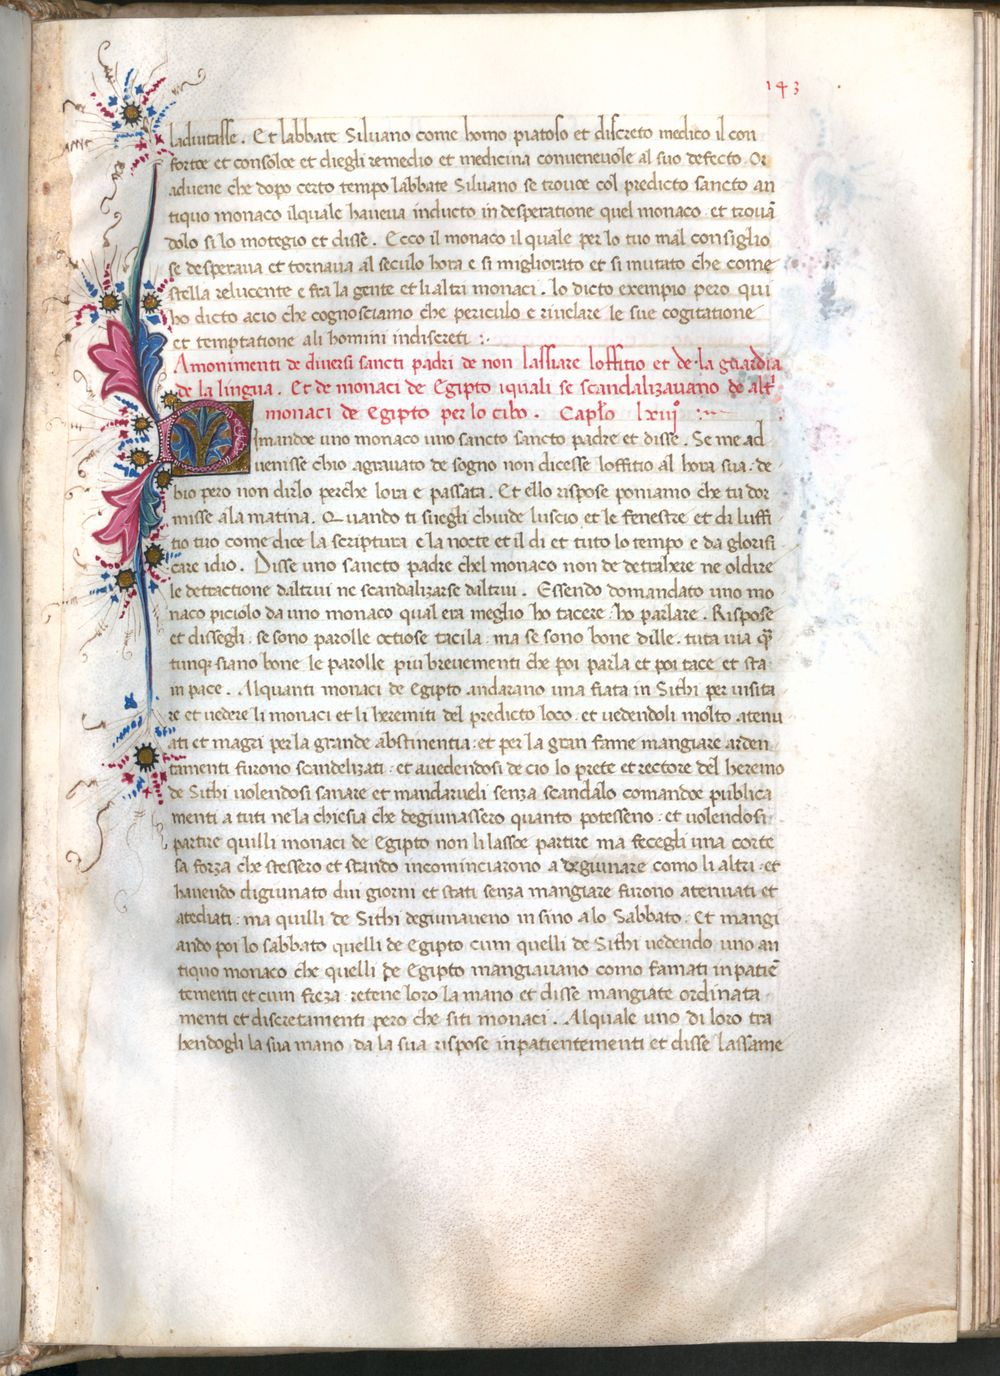 143
ladiutasse. Et labbate Siluano come homo piatoso et discreto medico il con
fortoe et consoloe et diegli remedio et medicina conueneuole al suo defecto. Or
aduene che dopo certo tempo labbate Siluano se trouoe col predicto sancto an
tiquo monaco ilquale haueua inducto in desperatione quel monaco. et trouā
dolo si lo motegio et disse. Ecco il monaco il quale per lo tuo mal consiglio
se desperaua et tornaua al seculo hora e si migliorato et si mutato che come
stella relucente e fra la gente et li altri monaci. Io dicto exempio pero qui
ho dicto acio che cognosciamo che periculo e riuelare le sue cogitatione
et temptatione ali homini indiscreti :.
Amonimenti de diuersi sancti padri de non lassiare loffitio et de la guardia
de la lingua. Et de monaci de Egipto iquali se scandalizauano de alt̃
monaci de Egipto per lo cibo. Capło lxiiiº
Imandoe uno monaco uno sancto sancto padre et disse. Se me ad
uenisse chio agrauato de sogno non dicesse loffitio al hora sua. de
bio pero non dirlo perche lora e passata. Et ello rispose poniamo che tu dor
misse ala matina. Quando ti suegli chiude luscio et le fenestre et di luffi
tio tuo come dice la scriptura e la nocte et il di et tuto lo tempo e da glorifi
care idio. Disse uno sancto padre chel monaco non de detrahere ne oldire
le detractione daltrui ne scandalizarse daltrui. Essendo domandato uno mo
naco piciolo da uno monaco qual era meglio ho tacere. ho parlare. Rispose
et dissegli. se sono parolle octiose tacila. ma se sono bone dille. tuta uia q̃
tunq̃ siano bone le parolle piu breuementi che poi parla et poi tace et sta
in pace. Alquanti monaci de Egipto andarano una fiata in Sithi per uisita
re et uedere li monaci et li heremiti del predicto loco. et uedendoli molto atenu
ati et magri per la grande abstinentia. et per la gran fame mangiare arden
tamenti furono scandelizati. et auedendosi de cio lo prete et rectore del heremo
de Sithi uolendosi sanare et mandarueli senza scandalo comandoe publica
menti a tuti ne la chiesia che degiunassero quanto potesseno. et uolendosi
partire quilli monaci de Egipto non li lassoe partire ma fecegli una corte
sa forza che stessero et stando incominciarono a degiunare como li altri. et
hauendo digiunato dui giorni et stati senza mangiare furono atenuati et
atediati. ma quilli de Sithi degiunaueno in sino a lo Sabbato. Et mangi
ando poi lo sabbato quelli de Egipto cum quelli de Sithi uedendo uno an
tiquo monaco che quelli de Egipto mangiauano como famati inpatiē
tementi et cum freza. retene loro la mano et disse mangiate ordinata
menti et discretamenti pero che siti monaci. Alquale uno di loro tra
hendogli la sua mano da la sua rispose inpatientementi et disse lassame